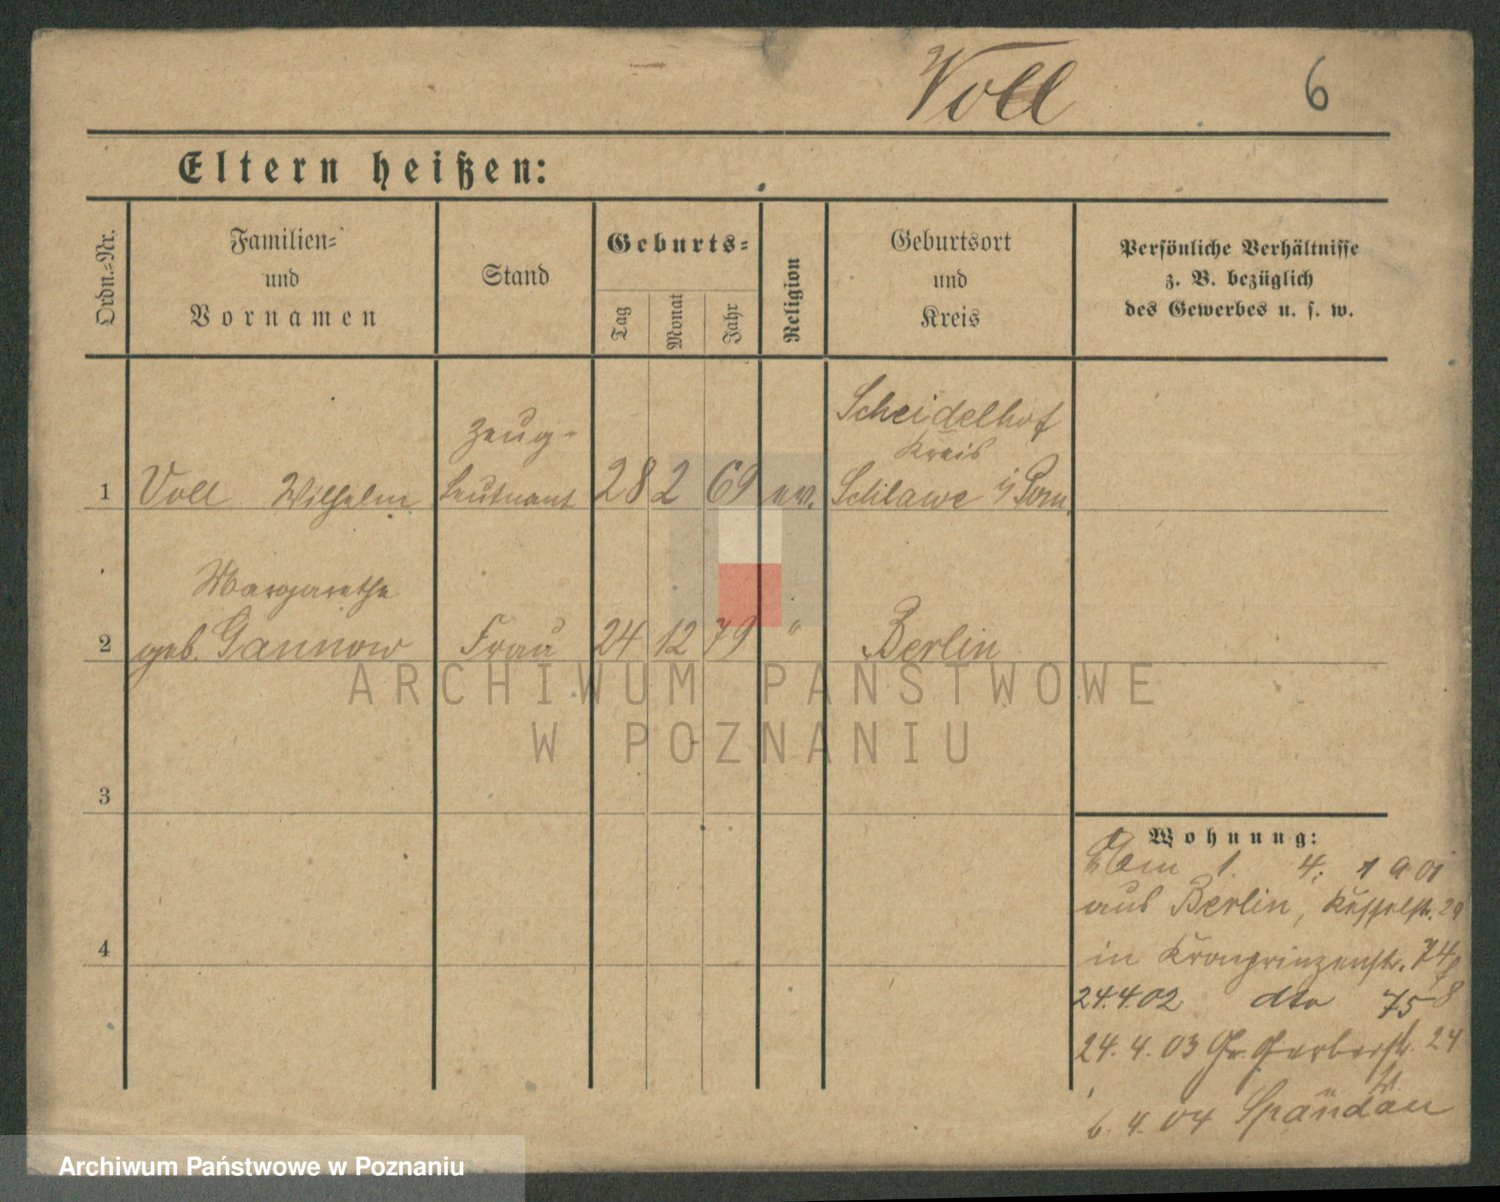 Voll 6
Eltern heißen:
Ordn.-Nr.
Familien-
und
Vornamen
Stand
Geburts-
Tag
Monat
Jahr
Religion
Geburtsort
und
Kreis
Persönliche Verhältnisse
z. B. bezüglich
des Gewerbes u. s. w.
Zeug-
Scheidelhof
Kreis
1 Voll Wilhelm Leutnant 28 2 69 ev. Schlawe i/Pom.
Margarethe
2 geb. Gannow Frau 24 12 79 " Berlin
3
4
Wohnung:
Am 1. 4. 1901
aus Berlin, Kesselstr. 29
in Kronprinzenstr. 74
24.4.02 dto 75
24. 4. 03 Gr. Gerberstr. 24
6. 4. 04 Spandau
ARCHIWUM PAŃSTWOWE
W POZNANIU
Archiwum Państwowe w Poznaniu